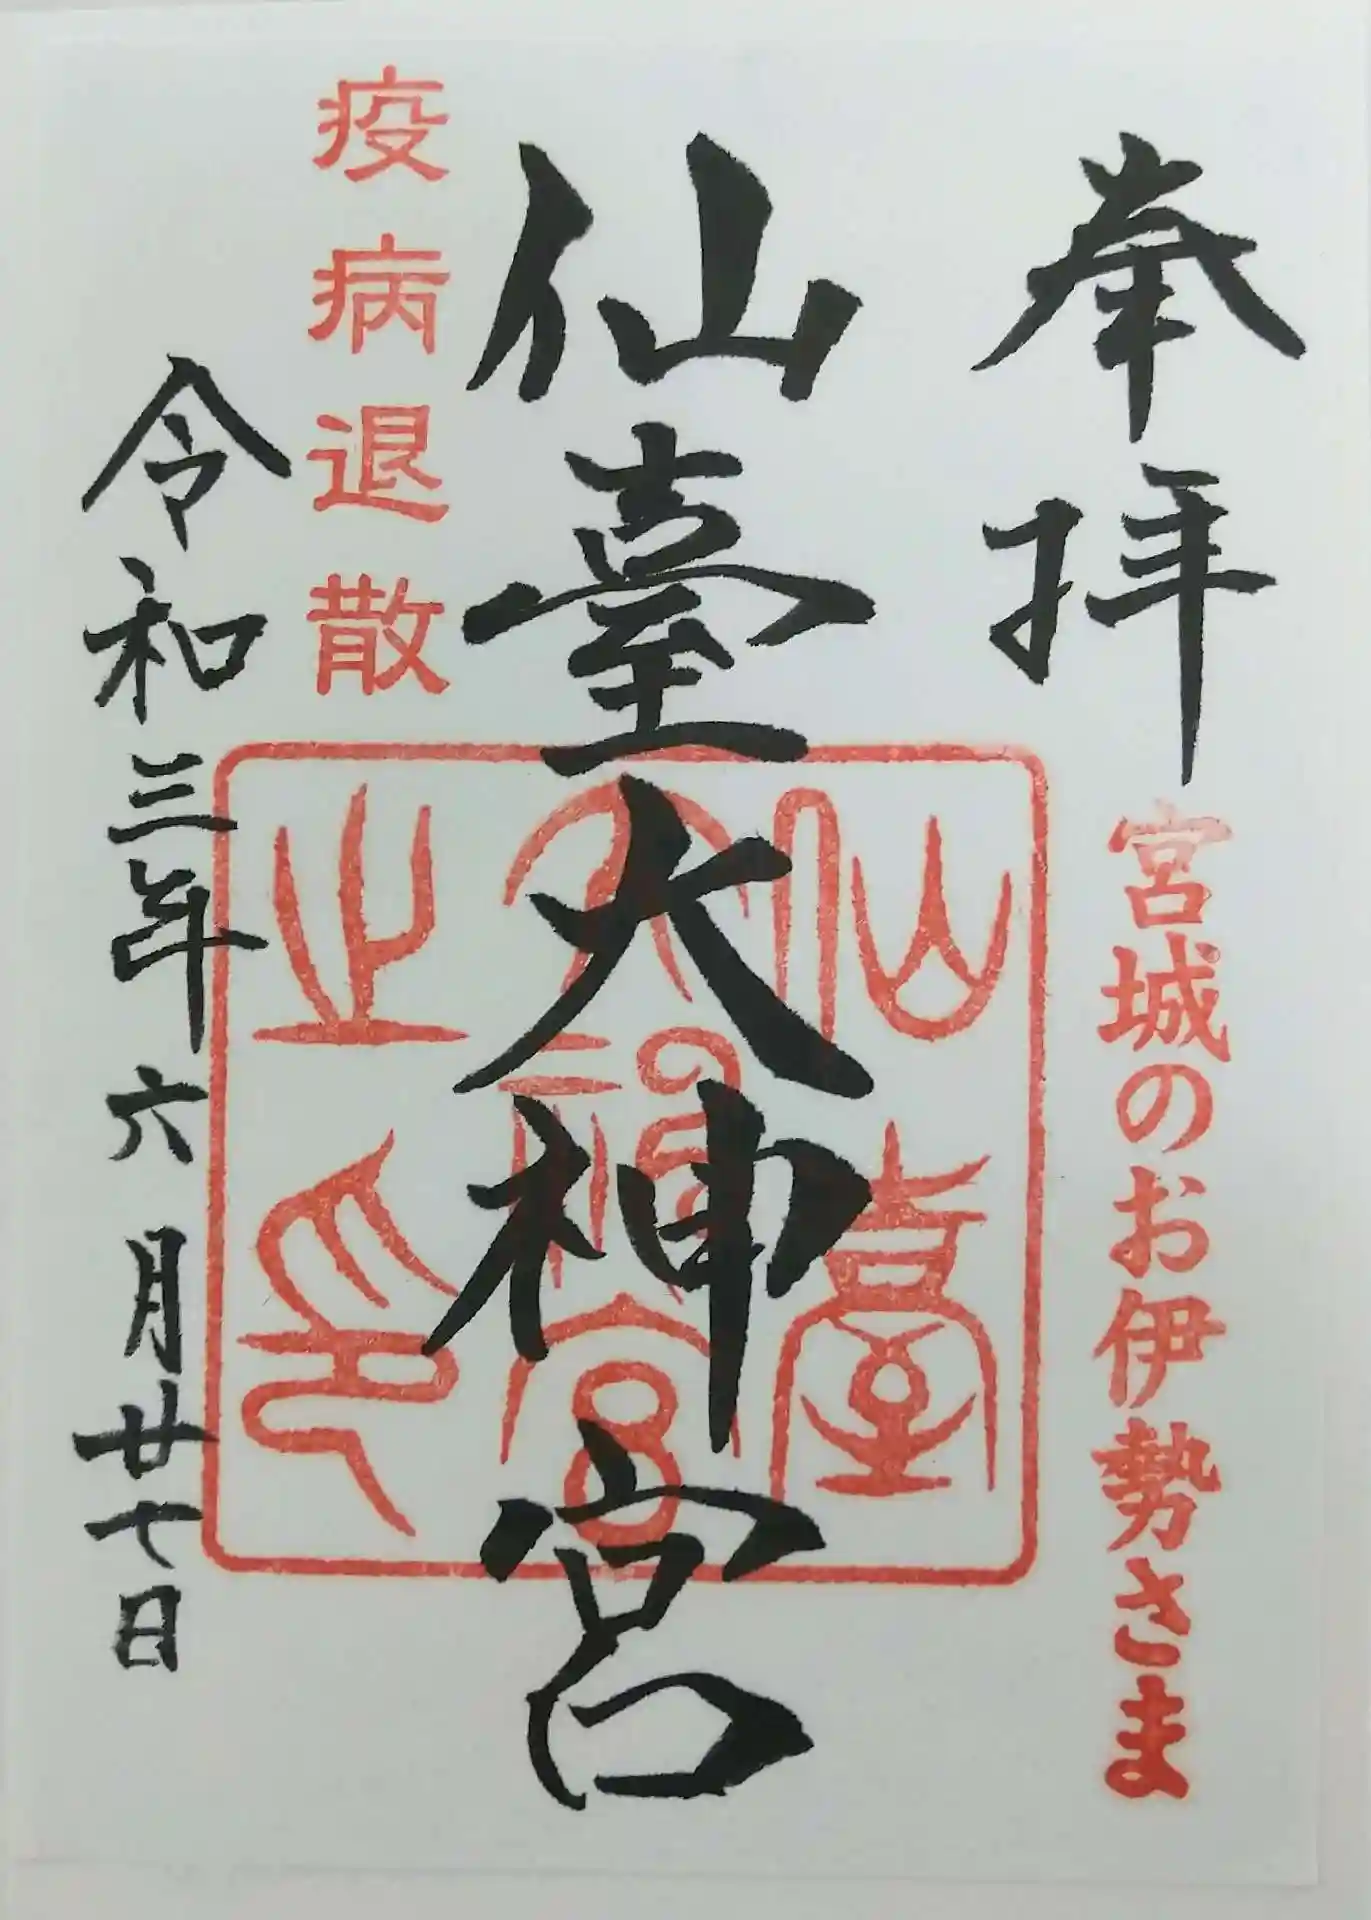 奉拝
宮城のお伊勢さま
仙臺大神宮
仙臺
大神宮
之印
疫病退散
令和三年六月廿七日